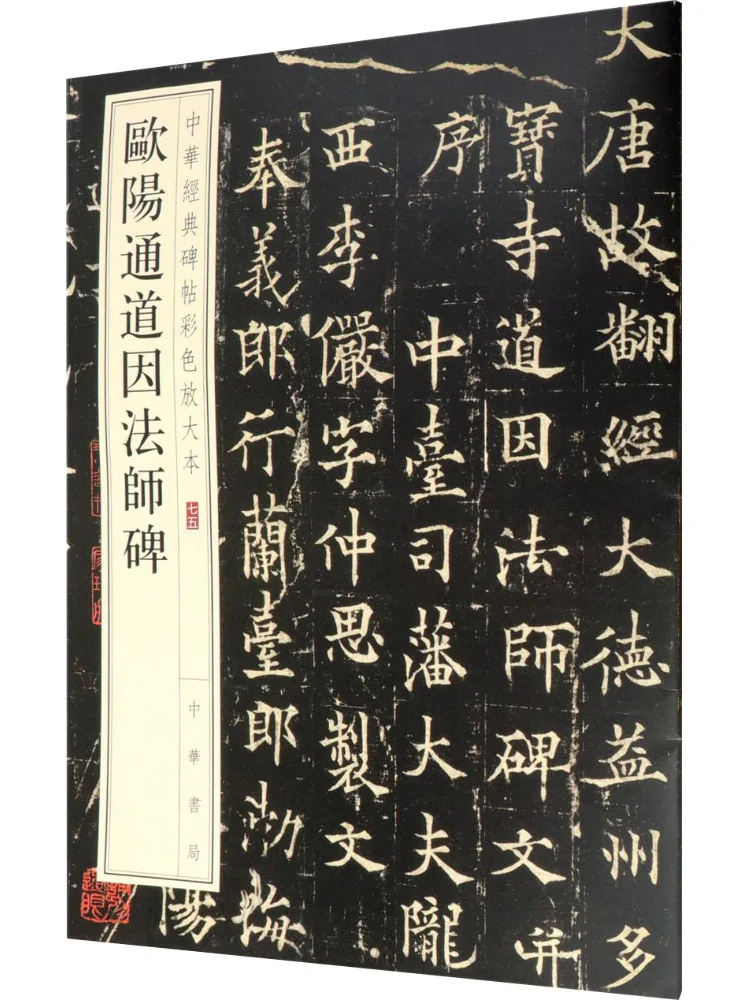 大唐故翻經大德益州多
寶寺道因法師碑文并
序
中臺司藩大夫隴
西李儼字仲思製文
奉義郎行蘭臺郎渤海
陽
中華經典碑帖彩色放大本
七五
中華書局
歐陽通道因法師碑